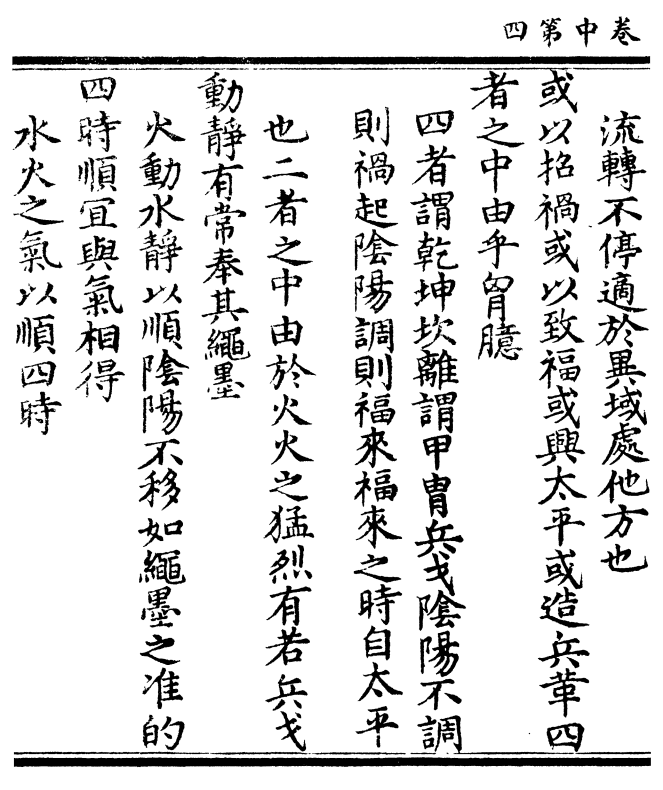 四第中卷
流轉不停適於異域處他方也
或以招禍或以致福或興太平或造兵革四
者之中由乎胷臆
四者謂乾坤坎離謂甲冑兵戈陰陽不調
則禍起陰陽調則福來福來之時自太平
也二者之中由於火火之猛烈有若兵戈
動靜有常奉其繩墨
火動水靜以順陰陽不移如繩墨之准的
四時順宜與氣相得
水火之氣以順四時